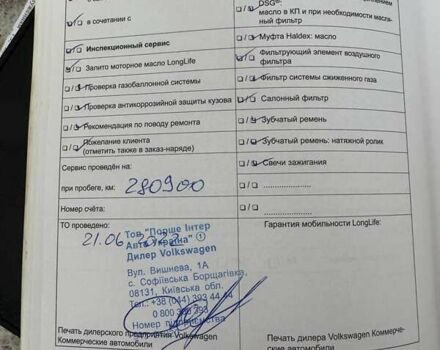 DSG®:
в сочетании с
масло в КП и при необходимости масля-
ный фильтр
Инспекционный сервис
Муфта Haldex: масло
Залито моторное масло LongLife
Фильтрующий элемент воздушного
фильтра
Проверка газобаллонной системы
Фильтр системы сжиженного газа
Проверка антикоррозийной защиты кузова
Салонный фильтр
Рекомендация по поводу ремонта
Зубчатый ремень
Пожелание клиента
(отметить также в заказ-наряде)
Зубчатый ремень: натяжной ролик
Сервис проведён на:
Свечи зажигания
при пробеге, км: 280900
Номер счёта:
ТО проведено:
Гарантия мобильности LongLife:
21.06
Тов "Порше Інтер
Авто Україна" ①
Дилер Volkswagen
Вул. Вишнева, 1А
с. Софіївська Борщагівка,
08131, Київська обл.
Тел.: +38 (044) 393 44 44
0 800
Номер підприємства
Печать дилерского предприятия Volkswagen
Коммерческие автомобили
Печать дилера Volkswagen Коммерче-
ские автомобили